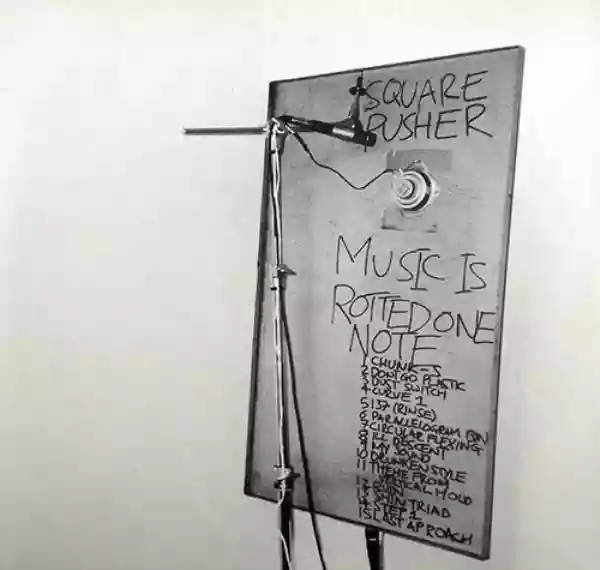 SQUARE
PUSHER
MUSIC IS
ROTTED ONE
NOTE
1 CHUNK-S
2 DON'T GO PLASTIC
3 DUST SWITCH
4 CURVE 1
5 137 (RINSE)
6 PARALLELOGRAM BIN
7 CIRCULAR FLEXING
8 ILL DESCENT
9 MY SOUND
10 DRUNKEN STYLE
11 THEME FROM
VERTICAL HOLD
12 RUIN
13 SHIN TRIAD
14 STEP 1
15 LAST APPROACH